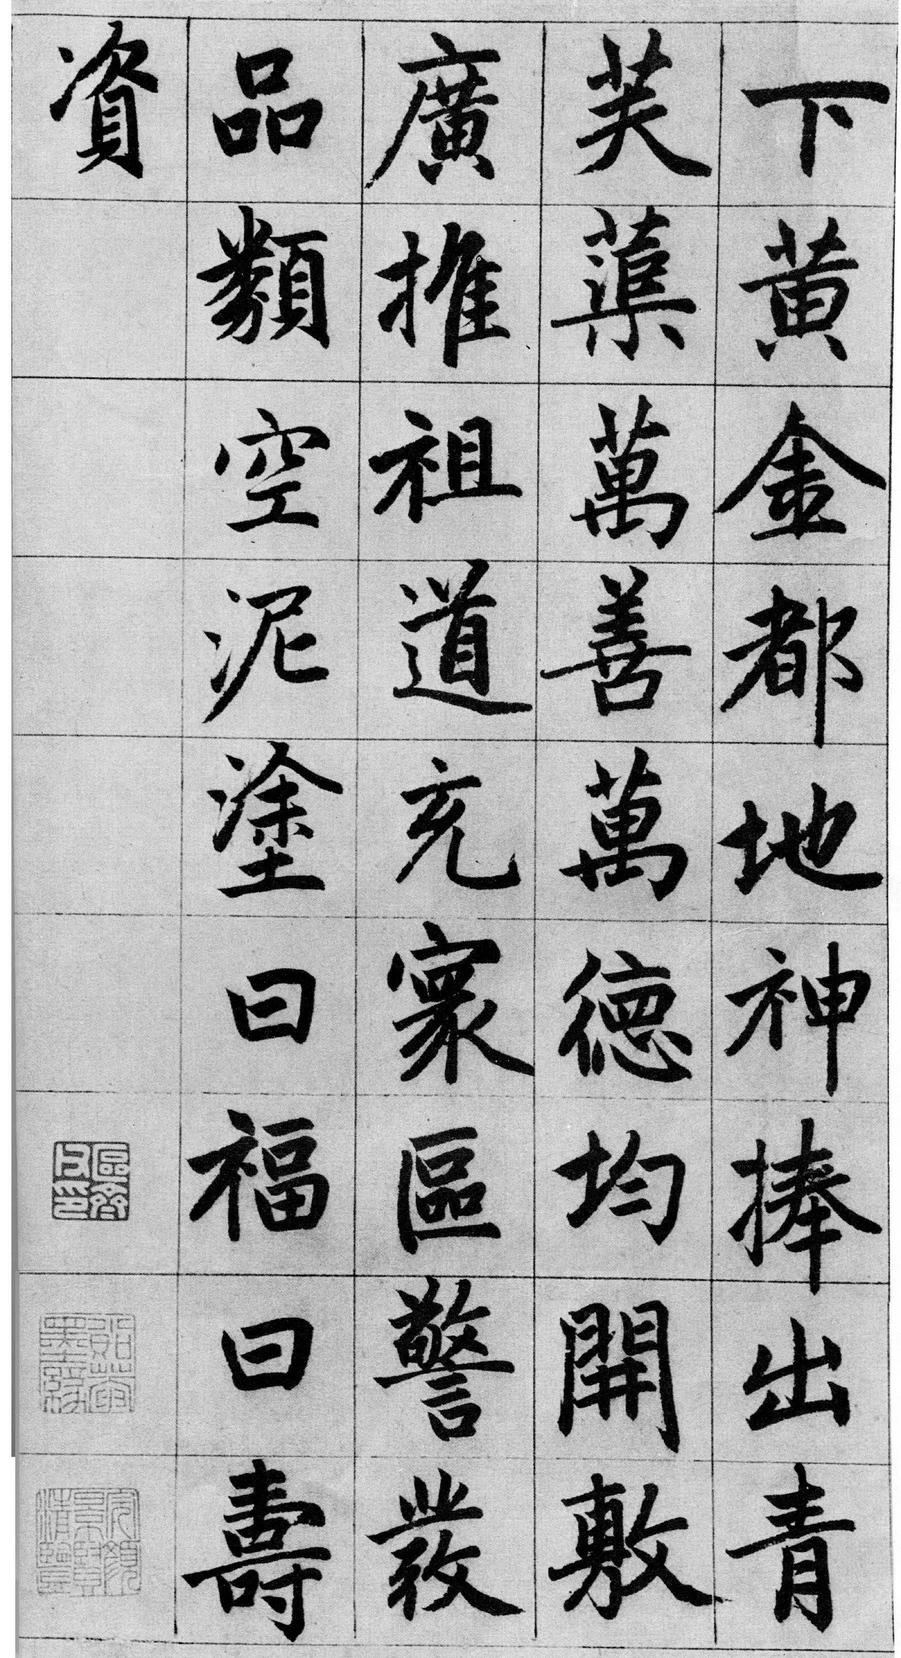 下黄金都地神捧出青
芙蕖萬善萬德均開敷
廣推祖道充寰區警發
品類空泥塗曰福曰壽
資